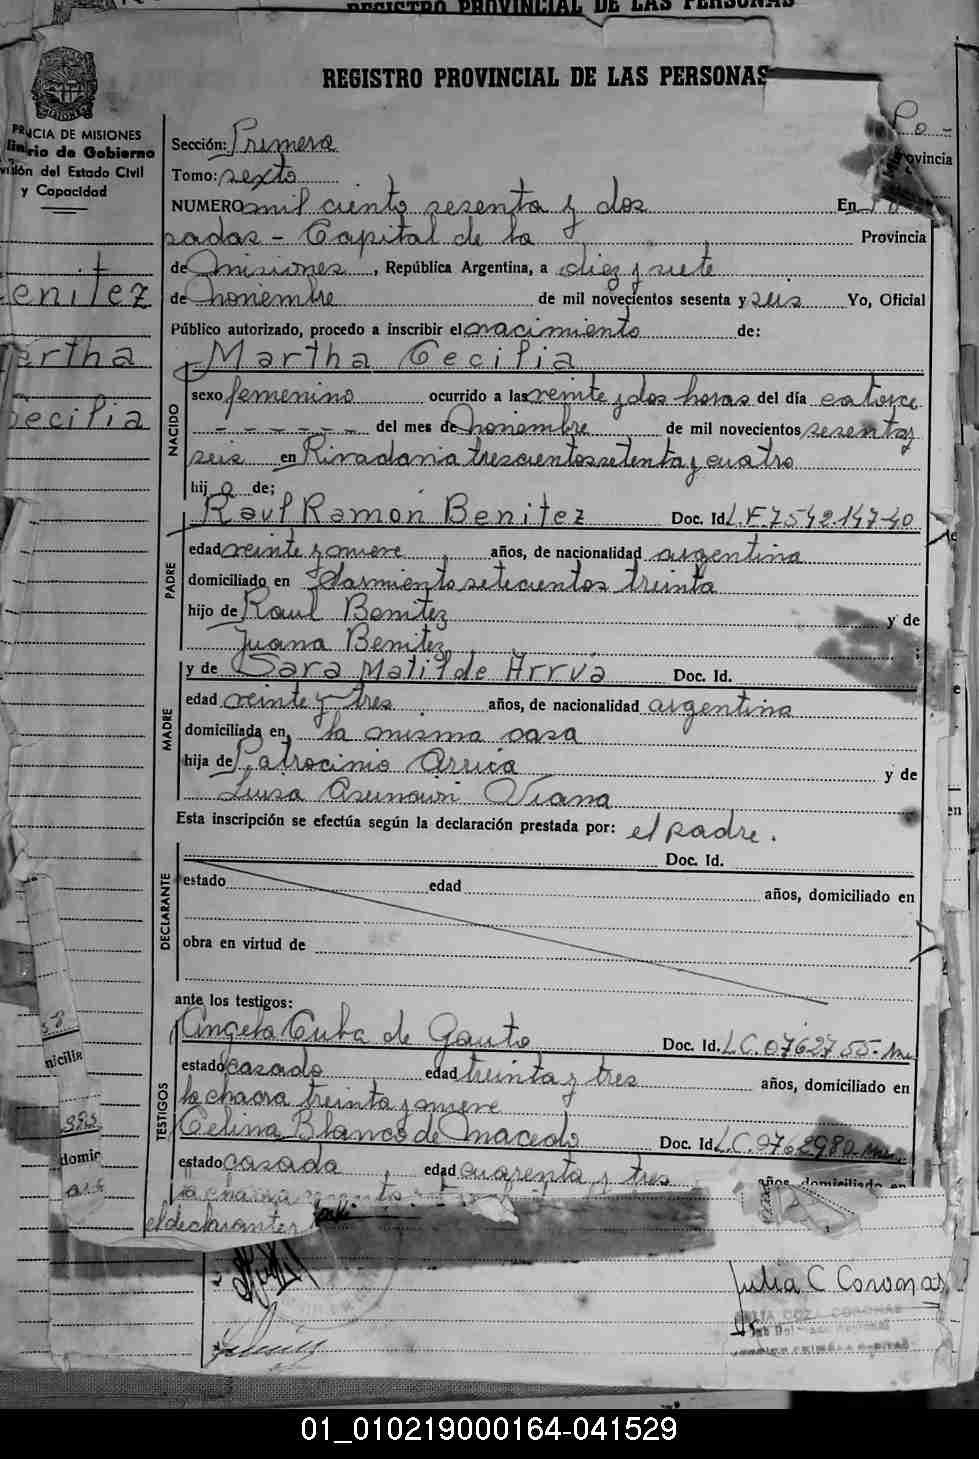 REGISTRO PROVINCIAL DE LAS PERSONAS
REGISTRO PROVINCIAL DE LAS PERSONAS
CIA DE MISIONES
rio de Gobierno
ión del Estado Civil
y Capacidad
enitez
artha
Cecilia
Sección: Primera
Tomo: sexto
NUMERO mil ciento sesenta y dos En Po
sadas - Capital de la Provincia
de Misiones, República Argentina, a diez y siete
de noviembre de mil novecientos sesenta y seis Yo, Oficial
Público autorizado, procedo a inscribir el nacimiento de:
Martha Cecilia
NACIDO
sexo femenino ocurrido a las veinte y dos horas del día catorce
- - - - - - del mes de Noviembre de mil novecientos sesenta y
seis en Rivadavia trescientos setenta y cuatro
hij a de;
Raul Ramon Benitez Doc. Id. L.E. 7.542.147-40
PADRE
edad veinte y nueve años, de nacionalidad argentina
domiciliado en Sarmiento setecientos treinta
hijo de Raul Benitez y de
Juana Benitez ;
y de Sara Matilde Arrua Doc. Id.
MADRE
edad veinte y tres años, de nacionalidad argentina
domiciliada en, la misma casa
hija de Patrocinio Arrua y de
Luisa Asuncion Viana
Esta inscripción se efectúa según la declaración prestada por: el padre.
Doc. Id.
DECLARANTE
estado edad años, domiciliado en
obra en virtud de
ante los testigos:
TESTIGOS
Angela Cuba de Gauto Doc. Id. L.C. 0762755-Mi
estado casado edad treinta y tres años, domiciliado en
la chacra treinta y nueve
Celina Blanco de Macedo Doc. Id. L.C. 0762980-Mi
estado casada edad cuarenta y tres años, domiciliado en
la chacra
el declarante
nicilia
domic
Provincia
y de
en
Julia C Coronas
JULIA COZA CORONAS
01_010219000164-041529